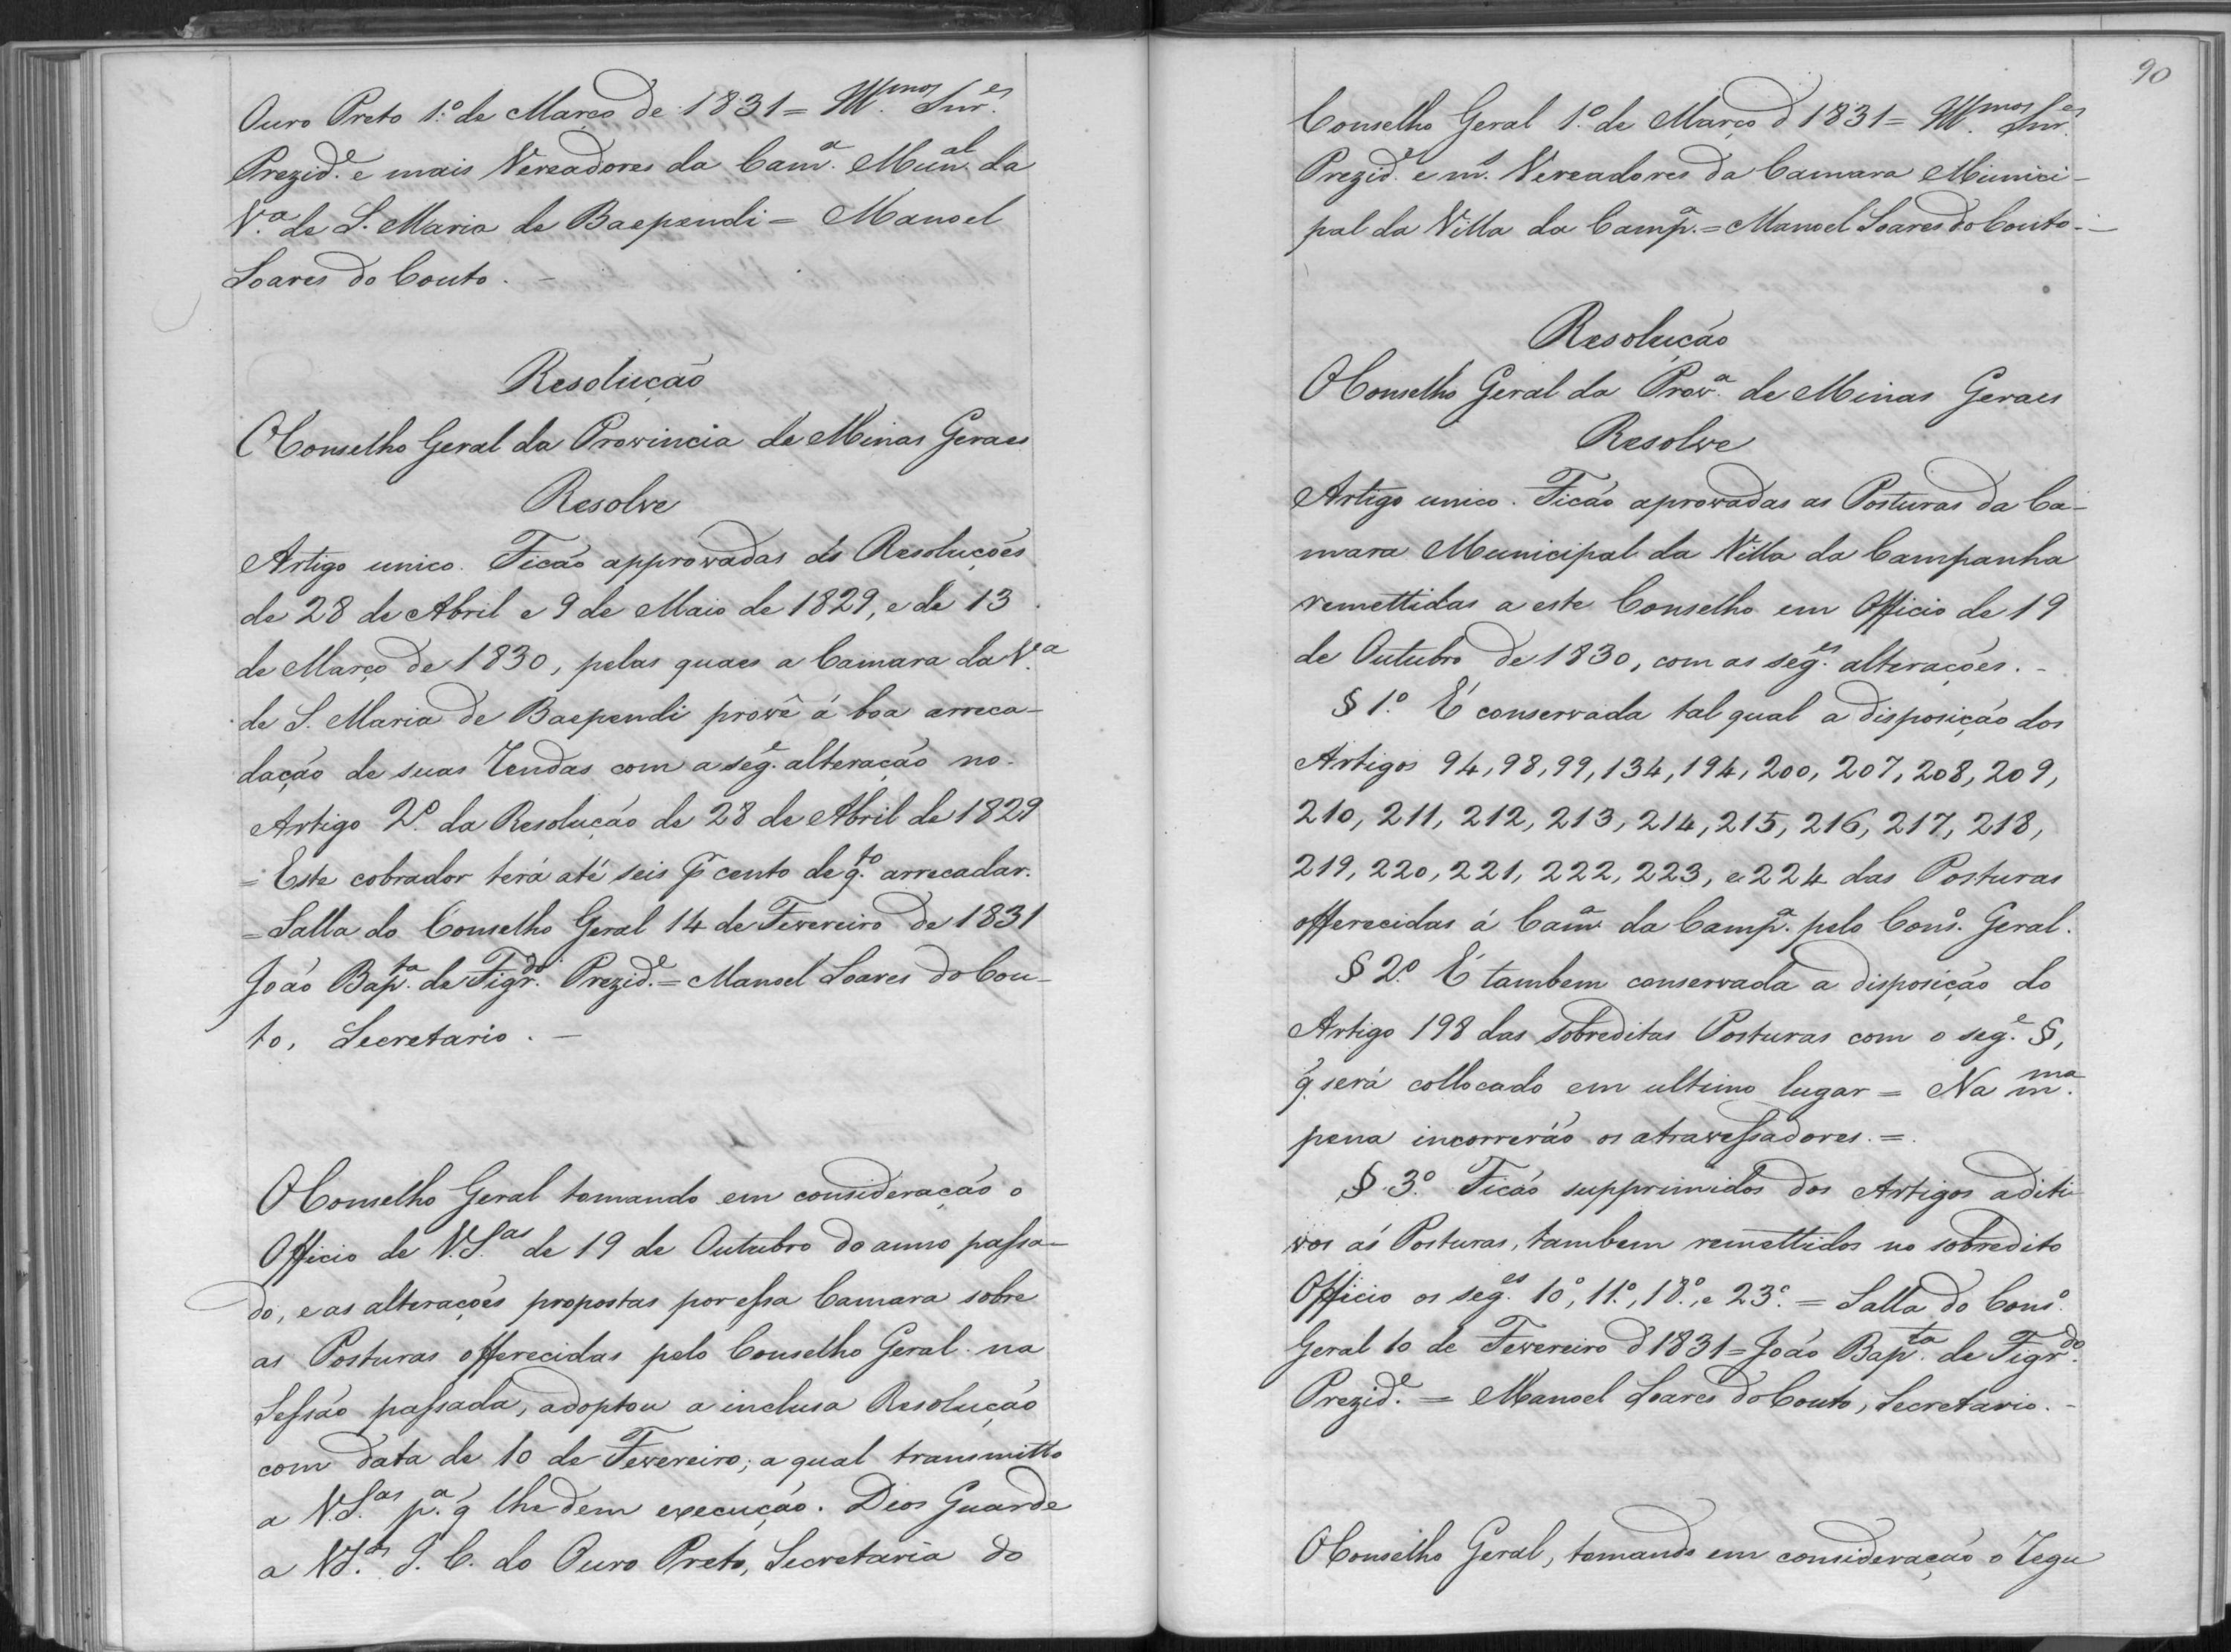 Ouro Preto 1.º de Março de 1831 = Ill.mos Snr.es
Prezid.e e mais Vereadores da Cam.a Mun.al da
V.a de S. Maria de Baependi = Manoel
Soares do Couto. —
Resolução
O Conselho Geral da Provincia de Minas Geraes
Resolve
Artigo unico. Ficão approvadas as Resoluções
de 28 de Abril e 9 de Maio de 1829, e de 13
de Março de 1830, pelas quaes a Camara da V.a
de S. Maria de Baependi provê á boa arreca-
dação de suas Rendas com a seg.e alteração no
Artigo 2.º da Resolução de 28 de Abril de 1829
= Este cobrador terá até seis p̃ cento de q.to arrecadar.
= Salla do Conselho Geral 14 de Fevereiro de 1831
João Bap.ta de Figr.do Prezid.e = Manoel Soares do Cou-
to, Secretario. —
O Conselho Geral tomando em consideração o
Officio de V.S.as de 19 de Outubro do anno passa-
do, e as alterações propostas por essa Camara sobre
as Posturas offerecidas pelo Conselho Geral na
Sessão passada, adoptou a inclusa Resolução
com data de 10 de Fevereiro; a qual transmitto
a V.S.as p.a q̃ lhe dem execução. Deos Guarde
a V.S.as I. C. do Ouro Preto, Secretaria do
90
Conselho Geral 1.º de Março d 1831 = Ill.mos Snr.es
Prezid.e e m.s Vereadores da Camara Munici-
pal da Villa da Camp.a = Manoel Soares do Couto. —
Resolução
O Conselho Geral da Prov.a de Minas Geraes
Resolve
Artigo unico. Ficão aprovadas as Posturas da Ca-
mara Municipal da Villa da Campanha
remettidas a este Conselho em Officio de 19
de Outubro de 1830, com as seg.es alterações. -
§ 1.º É conservada tal qual a disposição dos
Artigos 94, 98, 99, 134, 194, 200, 207, 208, 209,
210, 211, 212, 213, 214, 215, 216, 217, 218,
219, 220, 221, 222, 223, e 224 das Posturas
offerecidas á Cam.a da Camp.a pelo Cons.o Geral.
§ 2.º É tambem conservada a disposição do
Artigo 198 das sobreditas Posturas com o seg.e §,
q̃ será collocado em ultimo lugar = Na m.ma
pena incorrerão os atravessadores. =
§. 3.º Ficão supprimidos dos Artigos aditi-
vos ás Posturas, tambem remettidos no sobredito
Officio os seg.es 10.º, 11.º, 18.º, e 23.º = Salla do Cons.o
Geral 10 de Fevereiro d 1831 = João Bap.ta de Figr.do
Prezid.e = Manoel Soares do Couto, Secretario. -
O Conselho Geral, tomando em consideração o Regu